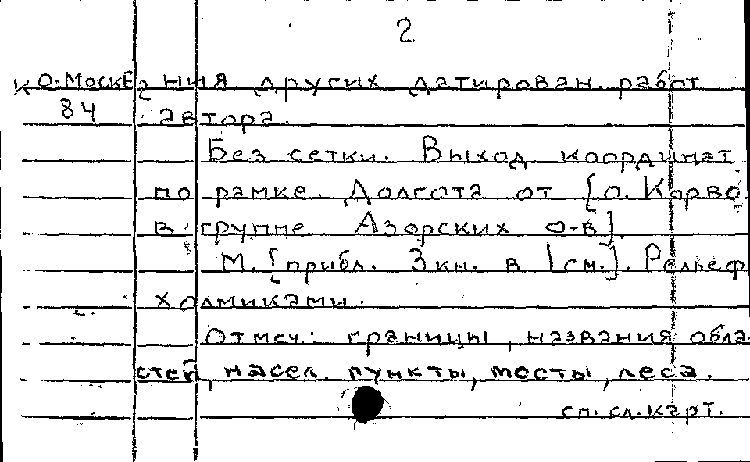 2
К О-Моск 84
ния других датирован. работ
автора.
Без сетки. Выход координат
по рамке. Долгота от [о. Корво
в группе Азорских о-в].
М. [прибл. 3 кн. в 1 см.]. Рельеф
холмиками.
Отмеч.: границы, названия обла-
стей, насел. пункты, мосты, леса.
см. сл. карт.